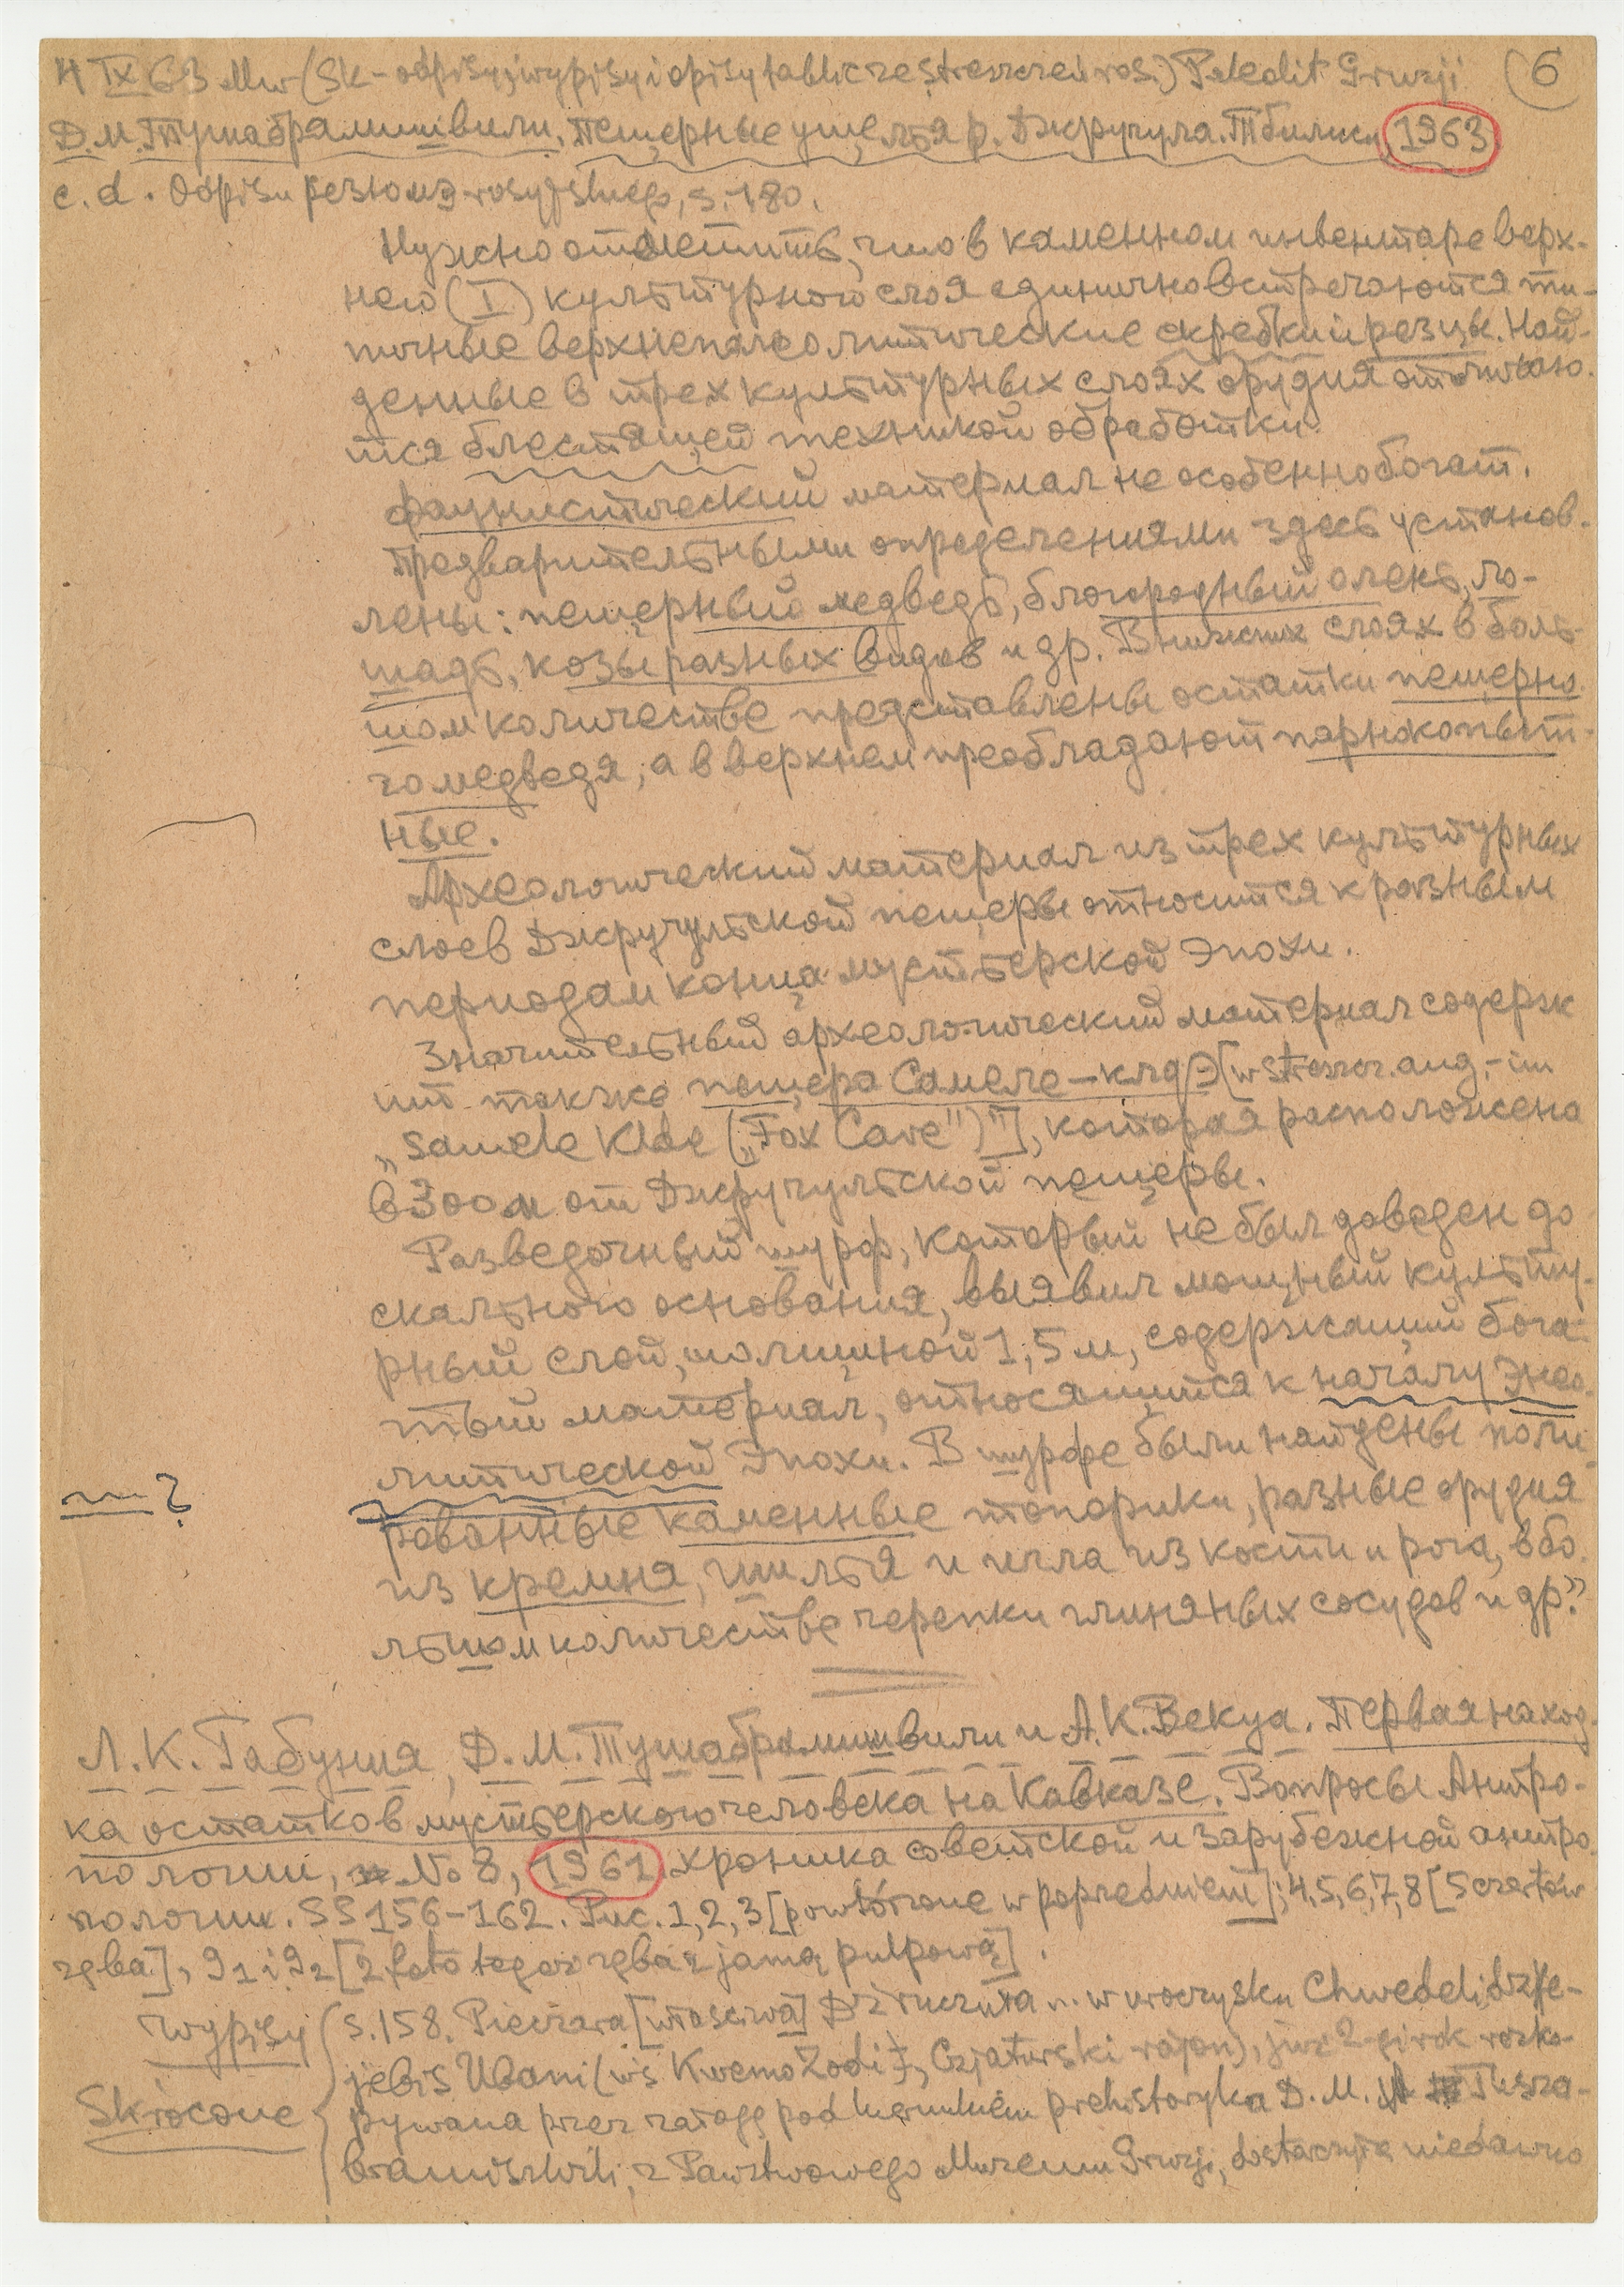 4 IX 63 Mw (Sk - odpisy, wypisy i opisy tablic ze streszczeń ros.) Paleolit Gruzji (6
Д.М. Тушабрамишвили. Пещерные ущелья р. Джручула. Тбилиси, 1963
c.d. odpisu резюмэ rosyjskiego, s. 180.
Нужно отметить, что в каменном инвентаре верх-
него (I) культурного слоя единично встречаются ти-
пичные верхнепалеолитические скребки и резцы. Най-
денные в трех культурных слоях орудия отличаю-
тся блестящей техникой обработки.
Фаунистический материал не особенно богат.
Предварительными определениями здесь установ-
лены: пещерный медведь, благородный олень, ло-
шадь, козы разных видов и др. В нижних слоях в боль-
шом количестве представлены остатки пещерно-
го медведя, а в верхнем преобладают парнокопыт-
ные.
Археологический материал из трех культурных
слоев Джручульской пещеры относится к разным
периодам конца мустьерской эпохи.
Значительный археологический материал содерж
ит также пещера Самеле-клдэ [w streszcz. ang.-im
„Samele Klde („Fox Cave")"], которая расположена
в 300 м от Джручульской пещеры.
Разведочный шурф, который не был доведен до
скального основания, выявил мощный культу-
рный слой, толщиной 1,5 м, содержащий бога-
тый материал, относящийся к началу энео-
литической эпохи. В шурфе были найдены поли-
~~?
рованные каменные топорики, разные орудия
из кремня, шилья и игла из кости и рога, в бо-
льшом количестве черепки глиняных сосудов и др."
Л.К. Габуния, Д.М. Тушабрамишвили и А.К. Векуа. Первая наход-
ка остатков мустьерского человека на Кавказе. Вопросы Антро-
пологии, No 8, 1961. Хроника советской и зарубежной антро-
пологии. SS 156-162. Рис. 1,2,3 [powtórzone w poprzedniem]; 4,5,6,7,8 [5 czertów
zęba], 9₁ i 9₂ [2 foto tegoż zęba z jamą pulpową].
Wypisy
Skrócone
s. 158. Pieczara [właściwa] Dżruczuła n. w uroczysku Chwedelidzfe-
jebis Ubani (wś Kwemo Zodi), Czjaturski rajon), już 2-gi rok rozko-
pywana przez załogę pod kierunkiem prehistoryka D.M. Tusza-
bramiszwili, z Państwowego Muzeum Gruzji, dostarczyła niedawno